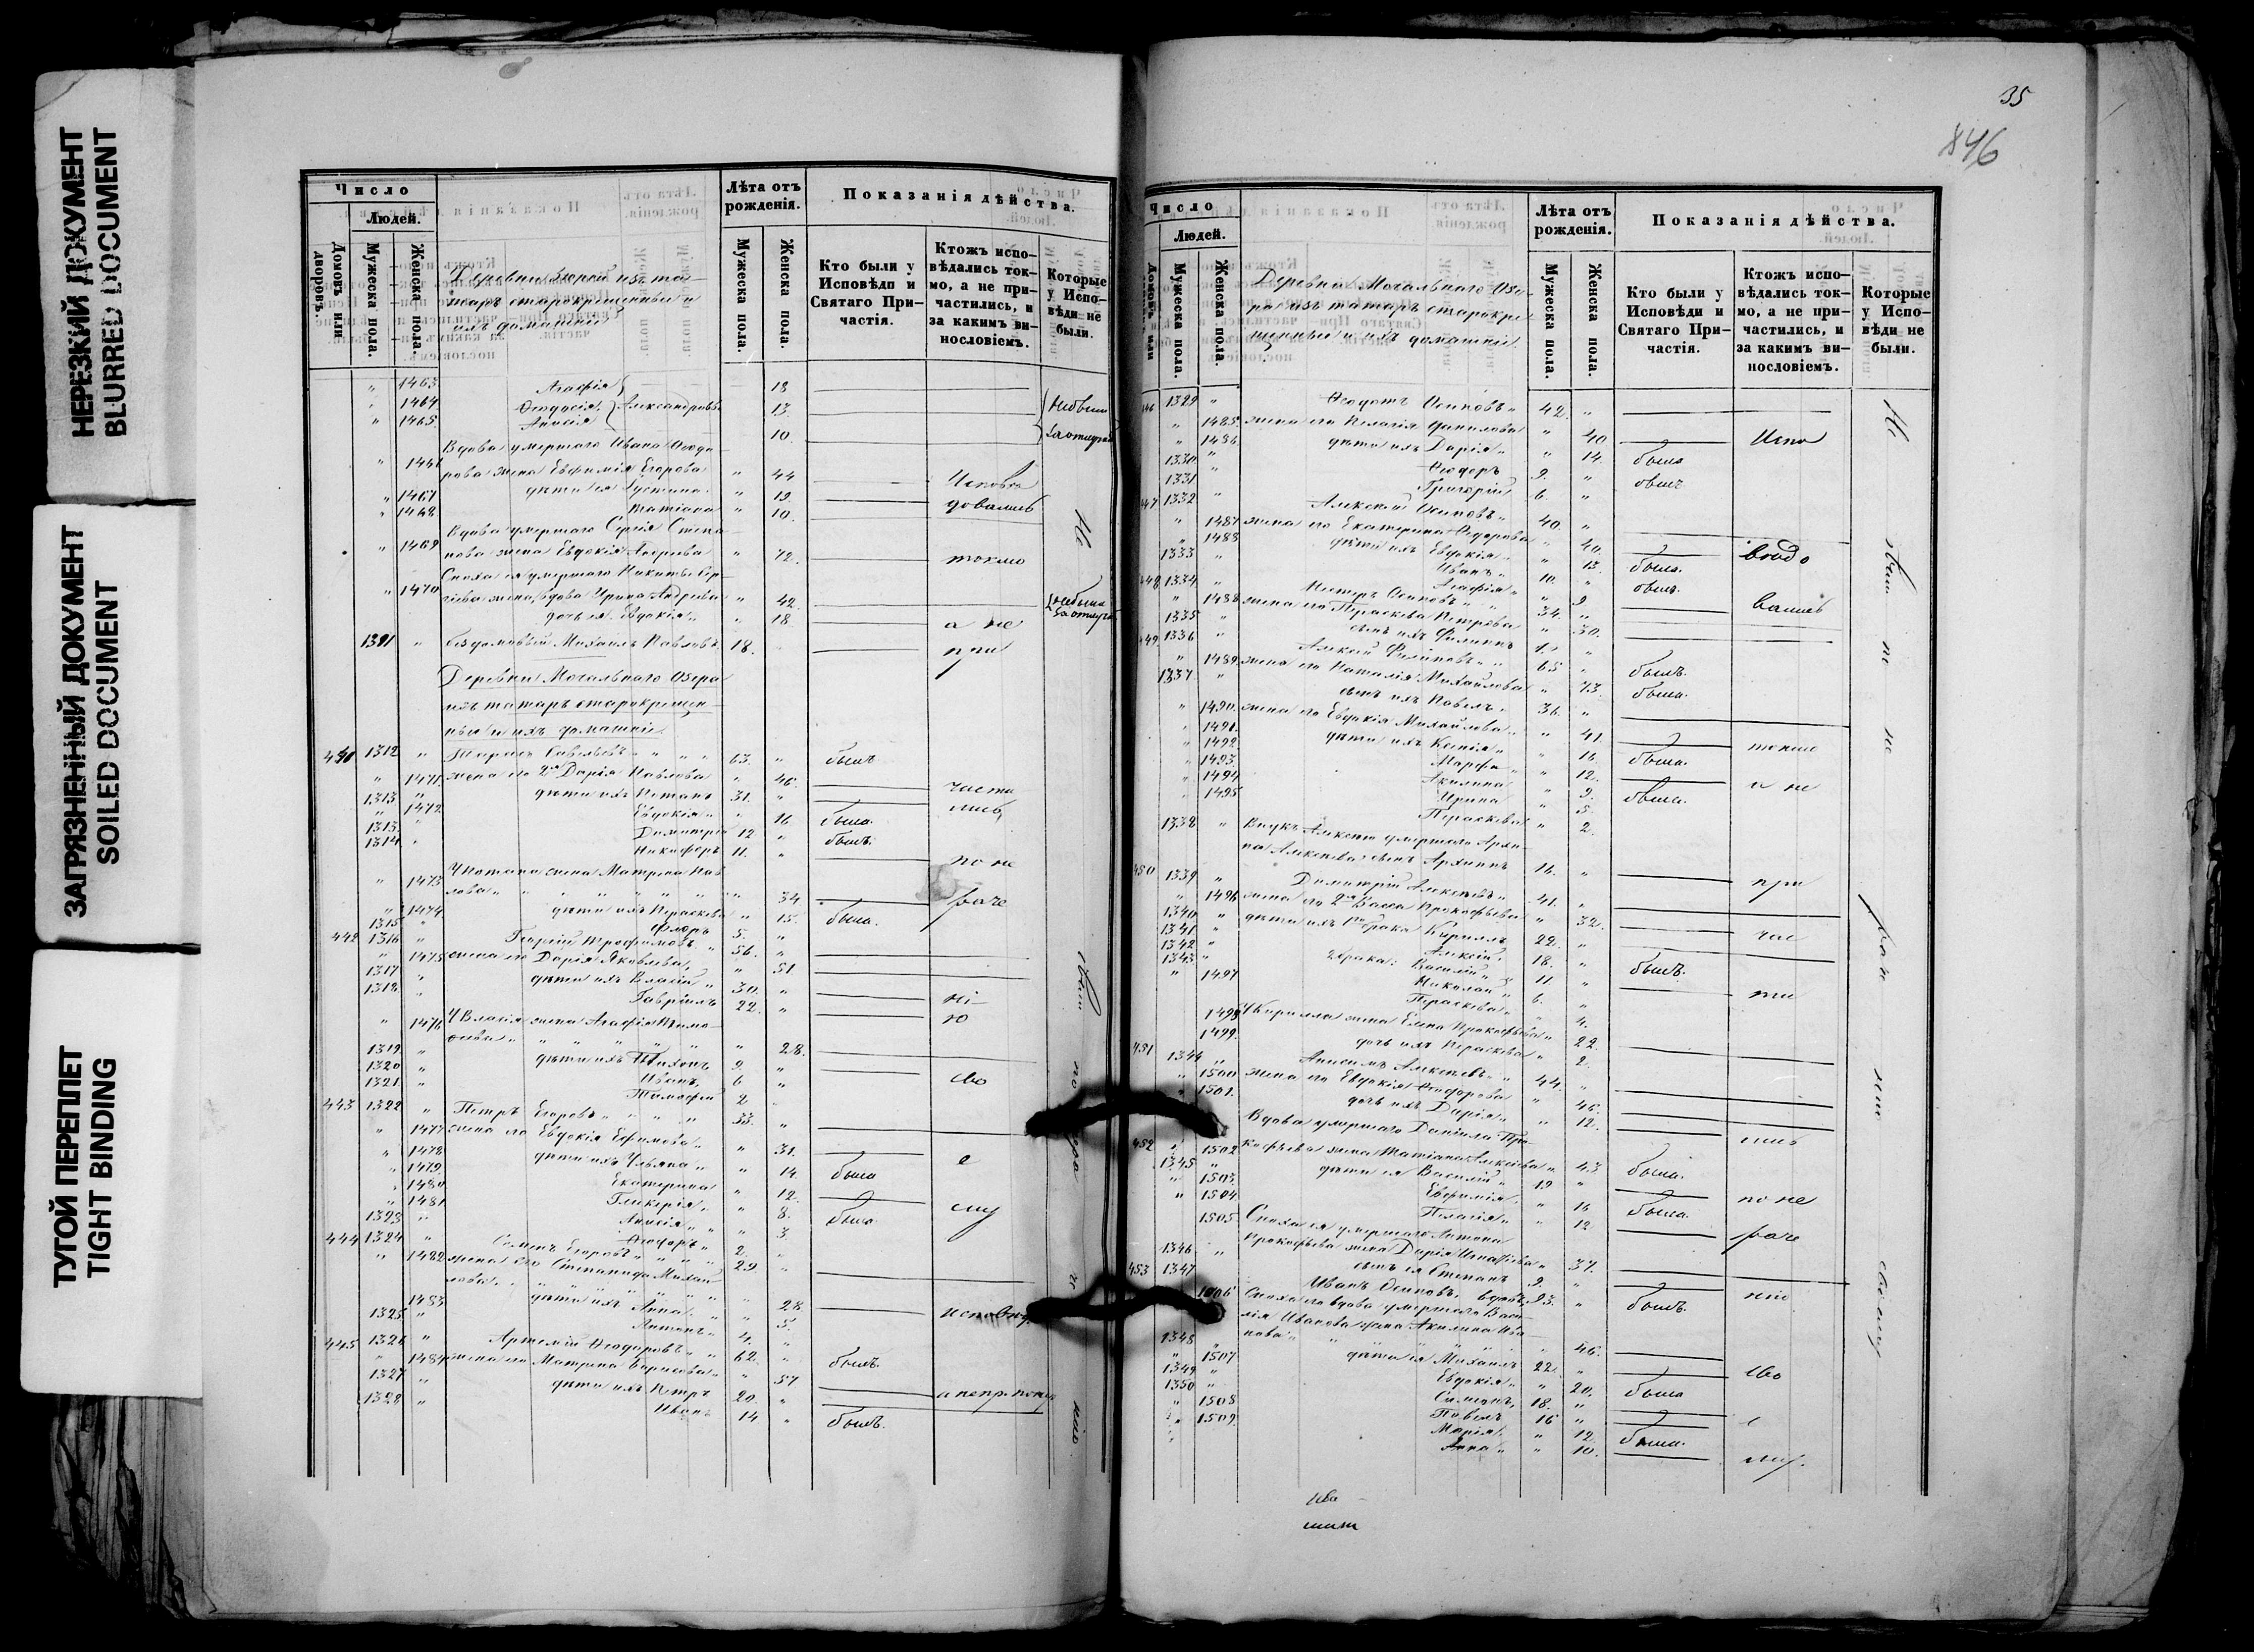 НЕРЕЗКИЙ ДОКУМЕНТ
BLURRED DOCUMENT
ЗАГРЯЗНЕННЫЙ ДОКУМЕНТ
SOILED DOCUMENT
ТУГОЙ ПЕРЕПЛЕТ
TIGHT BINDING
Число
Людей.
Домовъ или дворовъ.
Мужеска пола.
Женска пола.
Деревни из та-
таръ старокрещенные и
ихъ домашніе
Лѣта отъ рожденія.
Мужеска пола.
Женска пола.
Показанія дѣйства.
Кто были у Исповѣди и Святаго При-частія.
Ктожъ испо-вѣдались ток-мо, а не при-частились, и за какимъ ви-нословіемъ.
Которые у Испо-вѣди не были.
" 1463 Агафія 18
" 1464 Ѳеодосія Александровы 13.
" 1465. Анисія 10.
Вдова умершаго Ивана Ѳеодо-
" 1466 рова жена Евфимія Егорова " 44 Исповѣ
" 1467 дѣти ея Іустина " 12.
" 1468 Татіана " 10. довались
Вдова умершаго Сергія Степа-
" 1469 нова жена Евдокія Андреева " 72. токмо
Сноха ея умершаго Никиты Сер-
" 1470 гіева жена, вдова Ирина Андреева " 42.
дочь ея Евдокія " 18 а не
1311 " бездомовый Михаилъ Павловъ 18. при
Деревни Мочальнаго Озера
изъ татаръ старокрещен-
ные и ихъ домашніе.
1312 " Тарасъ Савельевъ 63. " былъ
" 1471. жена его 2я Дарія Павлова " 46. части
1313 " дѣти ихъ Потапъ 31. " лись,
" 1472 Евдокія " 16 была.
1313. " Димитрій 12 " былъ.
1314 " Никифоръ 11. "
У Потапа жена Матрена Пав по не
" 1473 лова 34 раче
" 1474 дѣти ихъ Параскева " 15. была.
1315 " Флоръ 5. "
442 1316 " Георгій Трофимовъ 56. "
" 1475 жена его Дарія Яковлева " 51
1317 " дѣти ихъ Власій 30. "
1318 " Гавріилъ 22. " ні-
У Власія жена Агафія Тимо- ю
" 1476 феева " 28.
1319. " дѣти ихъ Тихонъ 9. "
1320 " Иванъ, 6 " сво
1321. " Тимофей 2
443 1322 " Петръ Егоровъ 33. "
" 1477 жена его Евдокія Ефимова " 31. е
" 1478 дѣти ихъ Ульяна " 14. была
" 1479. Екатерина " 12.
" 1480 Гликерія " 8. му
" 1481 Анисія " 3 была
1323 " Ѳеодоръ 2.
444 1324 " Семенъ Егоровъ 29 "
" 1482 жена его Степанида Михай
лова " 28
1483 дѣти ихъ Анна " 5.
1325 " Антонъ 4. "
445 1326 " Артемій Ѳеодоровъ 62. " былъ.
" 1484 жена его Матрена Борисова " 57
1327 " дѣти ихъ Петръ 20. "
1328 " Иванъ 14 " былъ.
35
846
Число
Людей.
Мужеска пола.
Женска пола.
Деревни Мочальнаго Озе
ра изъ татаръ старокре
щенные и ихъ домашніе.
Лѣта отъ рожденія.
Мужеска пола.
Женска пола.
Показанія дѣйства.
Кто были у Исповѣди и Святаго При-частія.
Ктожъ испо-вѣдались ток-мо, а не при-частились, и за какимъ ви-нословіемъ.
Которые у Испо-вѣди не были.
446 1329 " Ѳеодотъ Осиповъ 42. "
" 1485. жена его Пелагія Данилова " 40 Испо
" 1486. дѣти ихъ Дарія " 14. была
1330 " Ѳеодоръ 9. " былъ
1331 " Григорій 6. "
447 1332 " Алексѣй Осиповъ 40. "
" 1487 жена его Екатерина Ѳедорова " 40.
" 1488 дѣти ихъ Евдокія " 13. была.
1333 " Иванъ 10. " былъ.
Агафія " 9
448 1334 " Петръ Осиповъ 34. " вались
" 1488 жена его Параскева Петрова " 30.
1335 " сынъ ихъ Филиппъ 1. "
449 1336 " Алексѣй Филиповъ 65 " былъ.
" 1489. жена его Наталія Михайлова " 73. была.
1337 " сынъ ихъ Павелъ 36. "
" 1490. жена его Евдокія Михайлова " 41.
" 1491. дѣти ихъ Ксенія " 16. была. токмо
" 1492. Марфа " 12.
" 1493. Акилина " 9. была. а не
" 1494 Ирина " 5.
" 1495 Параскева " 2.
1338 " Внукъ Алексѣю умершаго Архи-
па Алексѣева сынъ Архиппъ 16. " при
450 1339 " Димитрій Алексѣевъ 41. "
" 1496 жена его 2я Васса Прокофьева " 32.
1340 " дѣти ихъ 1го брака Кириллъ 22. " час
1341 " Алексѣй 18. "
1342 " 2 брака: Василій 11. " былъ.
1343 " Николай 6. " ти
" 1497 Параскева " 4.
1498 У Кирилла жена Елена Прокофьева " 22
1499. дочь ихъ Параскева " 2.
451 1344 " Анисимъ Алексѣевъ 44. "
" 1500 жена его Евдокія Ѳеодорова " 46.
" 1501. дочь ихъ Дарія " 12. лись
Вдова умершаго Даніила Про-
452 " 1502 кофьева жена Татіана Алексѣева " 43 была.
1345 " дѣти ея Василій 19 "
" 1503. Евфимія " 16 была. по не
" 1504 Пелагія " 12
Сноха ея умершаго Антона раче
1505 Прокофьева жена Дарія Игнатіева " 37.
1346. " сынъ ея Степанъ 9. "
453 1347 Иванъ Осиповъ, вдовъ, 93. " былъ. нію
1506 Сноха его вдова умершаго Васи-
лія Иванова жена Акилина Ива
нова " 46.
1348 " дѣти ея Михаилъ 22. " сво
" 1507 Евдокія " 20. была
1349 " Симеонъ, 18. "
1350 " Павелъ 16 " е
" 1508 Марія " 12. была.
" 1509. Анна " 10. му.